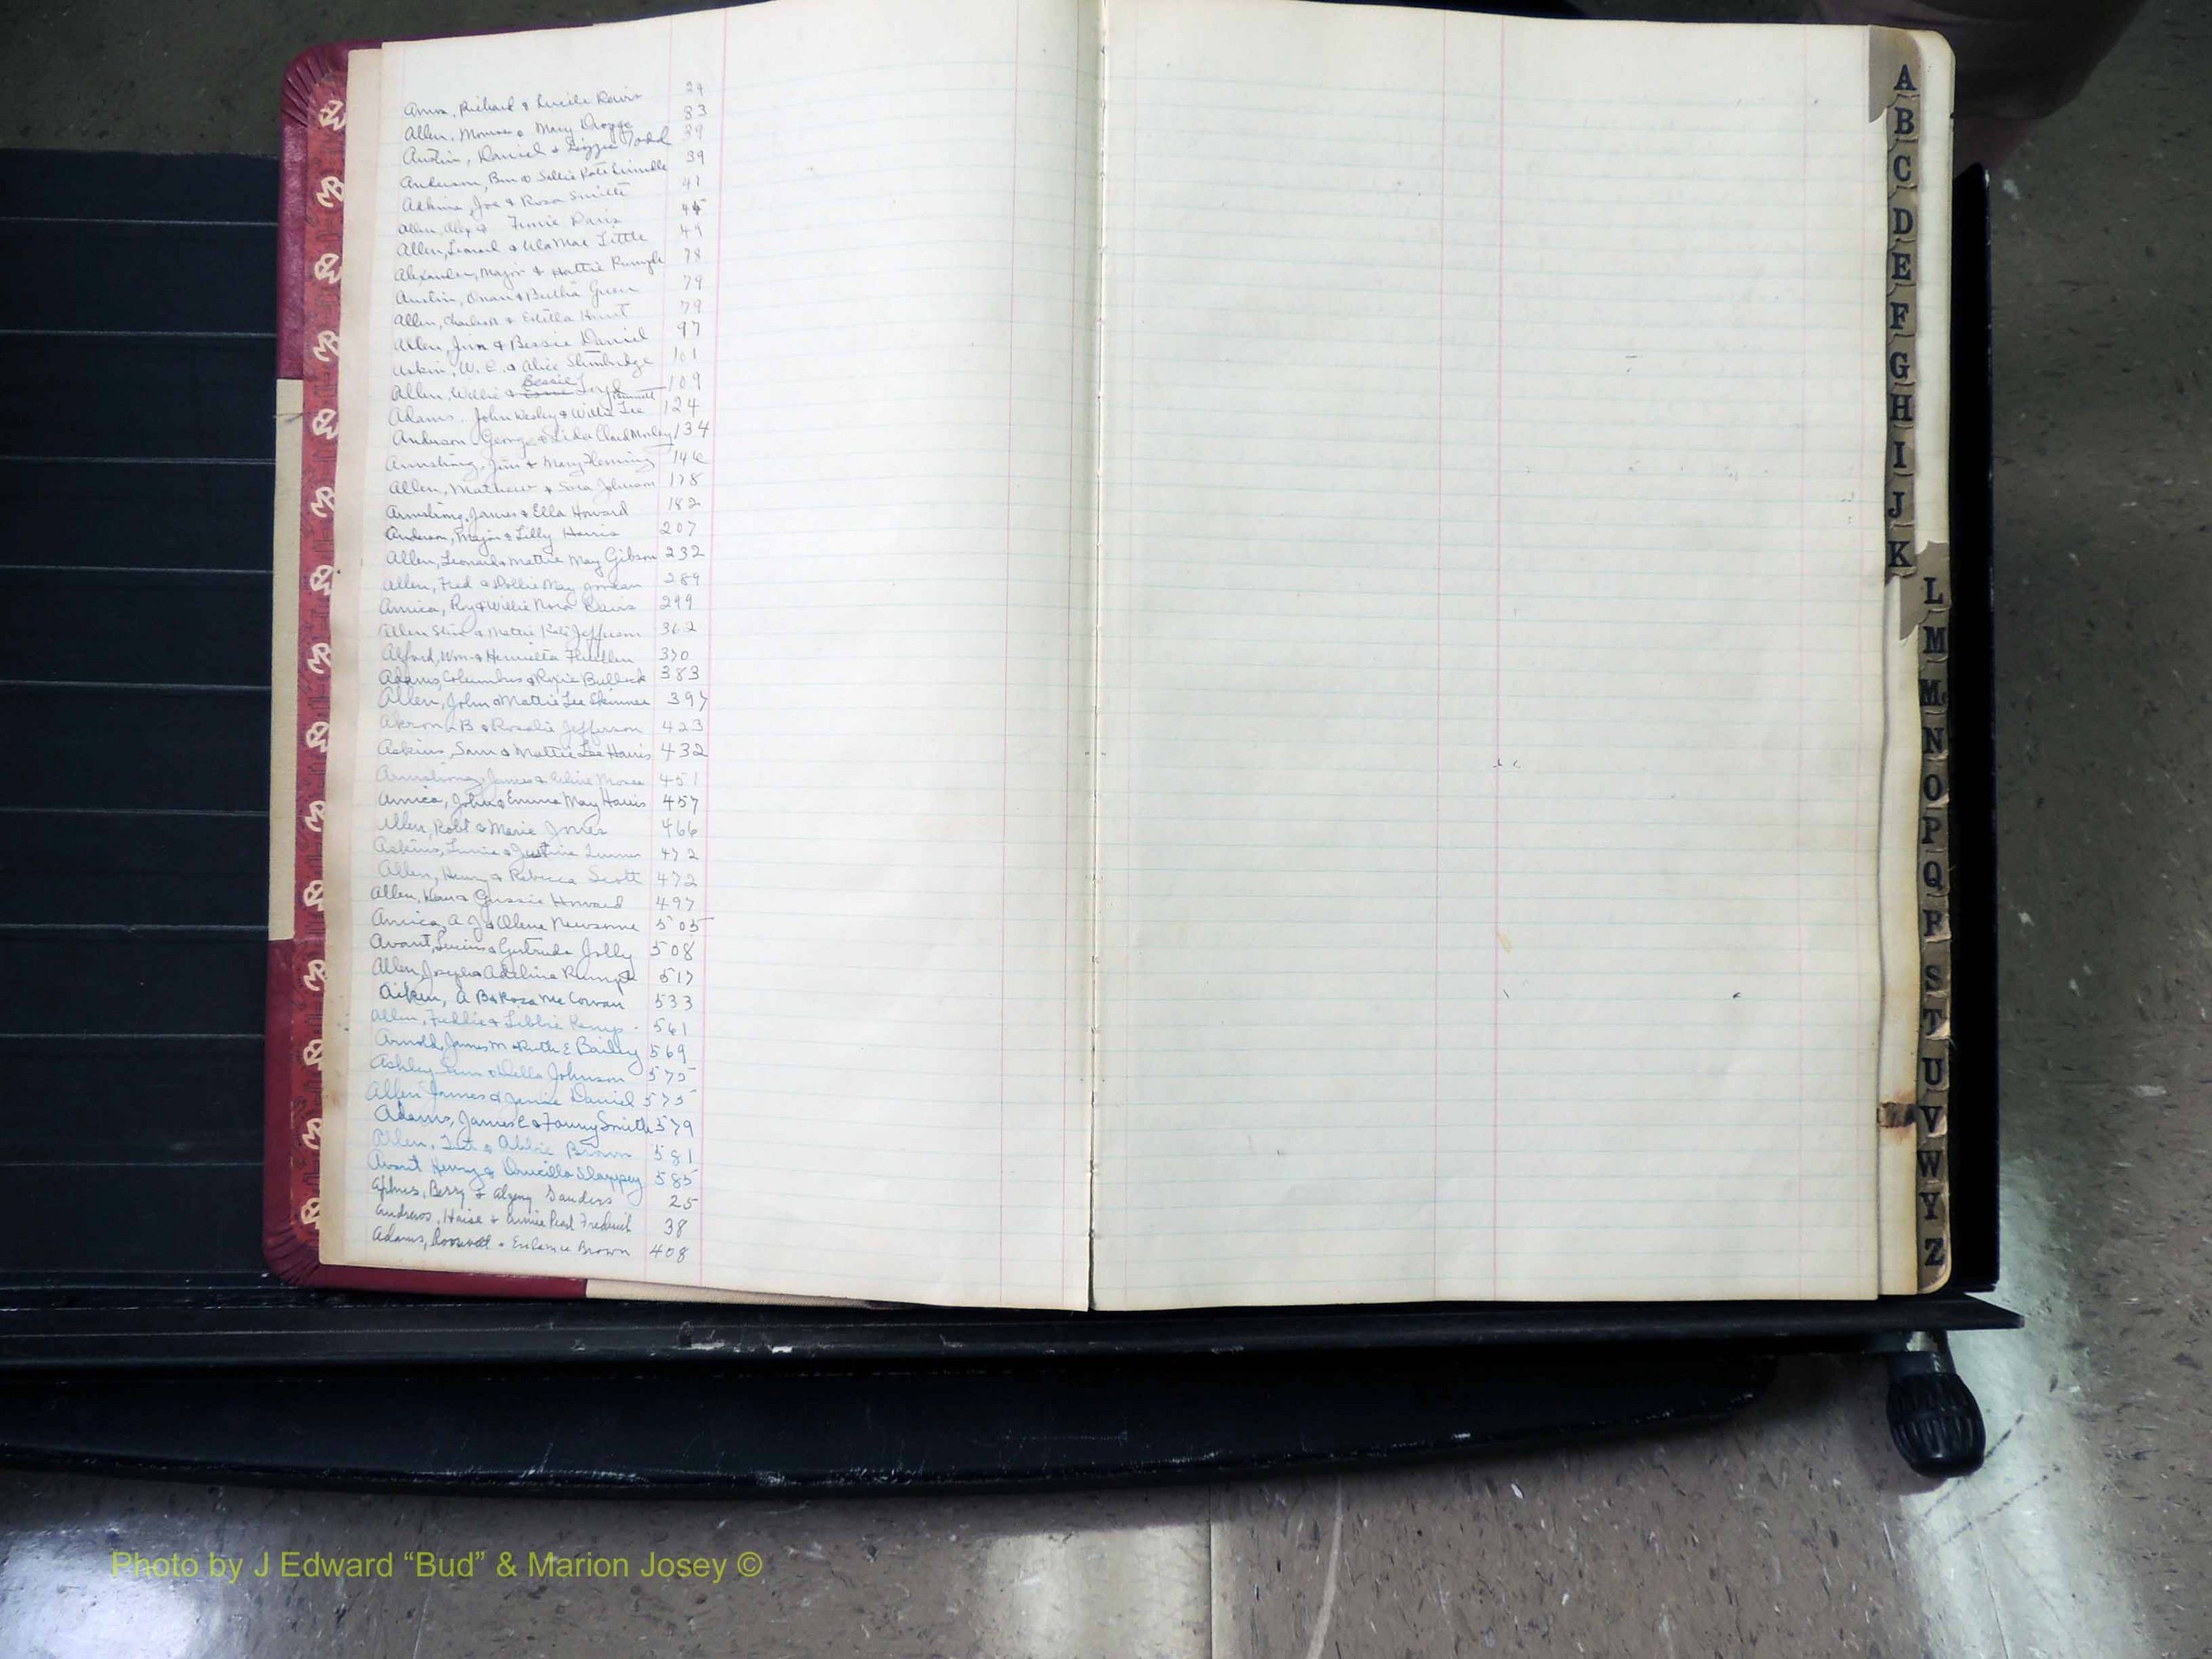 Richard & Lucile Davis 29
Allen, Monroe & Mary 83
Austin, Daniel & Lizzie Todd 39
Anderson, Ben & Sallie Kate 39
Adkins, Joe & Rosa Smith 41
Allen, Alex & Davis 45
Allen, Leonard & Ula Mae Little 49
Alexander, Major & Hattie Rumph 78
Austin, & Bertha Green 79
Allen, Charles & Estella Hunt 79
Allen, Jim & Bessie Daniel 97
W. C. & Alice 101
Bessie
Allen, Willie & 109
Adams, John Wesley & Willie Lee 124
Anderson George & Lida Claud Mosley 134
Armstrong, Jim & Mary Fleming 146
Allen, Mathew & Johnson 178
Armstrong, James & Ella Howard 182
Anderson, Major & Lilly Harris 207
Allen, Leonard & Mattie May Gibson 232
Allen, Fred & Dollie May Jordan 289
Amica, Roy & Willie Nora Davis 299
Allen & Mattie Kate Jefferson 362
Alford, Wm & Henrietta Fluellen 370
Adams, Columbus & Roxie Bullock 383
Allen, John & Mattie Lee Skinner 397
B & Rosalie Jefferson 423
Askins, Sam & Mattie Lee Harris 432
Armstrong, James & 451
Amica, John & Emma May Harris 457
Allen, Robt & Marie Jones 466
Askins, & Justine Turner 472
Allen, Henry & Rebecca Scott 472
Allen, & Gussie Howard 497
Amica, A J & Olene Newsome 505
Avant, Lucius & Gertrude Jolly 508
Allen, Joseph & Adeline Rumph 517
Aiken, A B & Rosa McCowan 533
Allen, Freddie & Libbie Kemp 561
Arnold, James M & Ruth E Bailey 569
Ashley Sam & Della Johnson 575
Allen James & Janie Daniel 575
Adams, James E & Fanny Smith 579
Allen, & Abbie Brown 581
Avant Henry & Drucilla Slappey 585
Berry & Sanders 25
Andrews, & Annie Pearl Frederick 38
Adams, Roosevelt & Brown 408
A
B
C
D
E
F
G
H
I
J
K
L
M
Mc
N
O
P
Q
R
S
T
U
V
W
Y
Z
Photo by J Edward “Bud” & Marion Josey ©